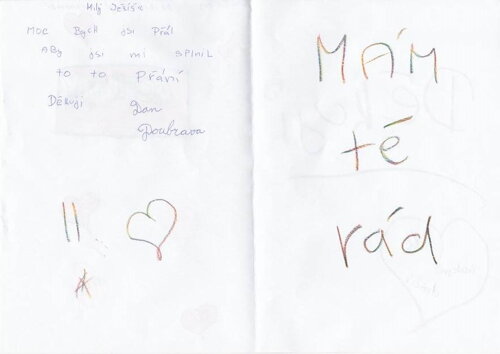 Milý Ježíšk
Moc Bych jsi Přál
ABy jsi mi splnil
to to Přání
Děkuji Dan
Doubrava
MÁM
tě
rád